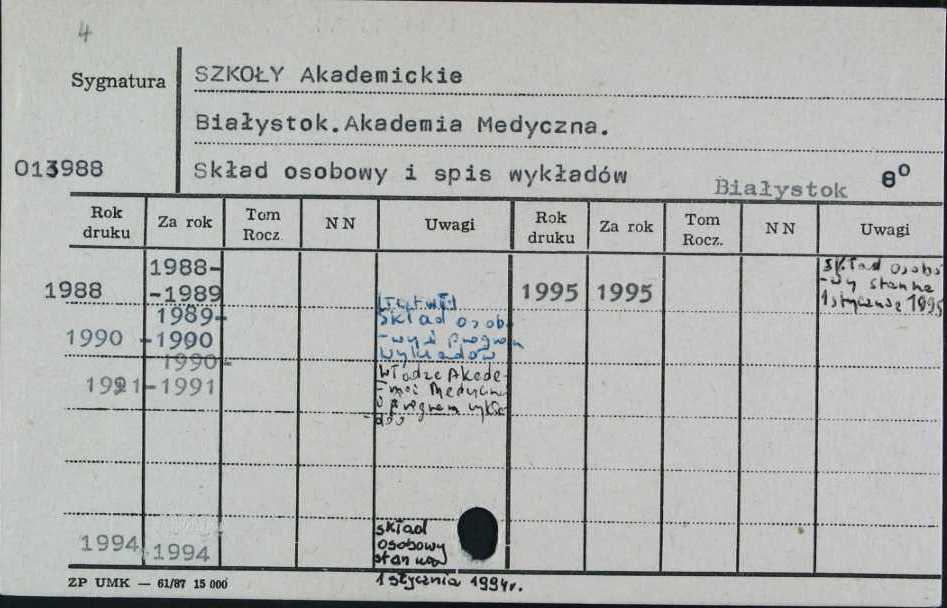 4
Sygnatura
SZKOŁY Akademickie
Białystok.Akademia Medyczna.
013988
Skład osobowy i spis wykładów
Białystok 8º
Rok druku Za rok Tom Rocz. NN Uwagi Rok druku Za rok Tom Rocz. NN Uwagi
1988 1988-
-1989
1995 1995 Skład osobo
-wy stan na
1 stycznia 1995
1990 1989-
-1990
Skład osob
-wy i program
wykładów
1991 1990-
-1991
Władze Akade-
-mii Medyczn
i program wykła
-dów
1994 1994 skład
osobowy
stan na
1 stycznia 1994r.
ZP UMK — 61/87 15 000